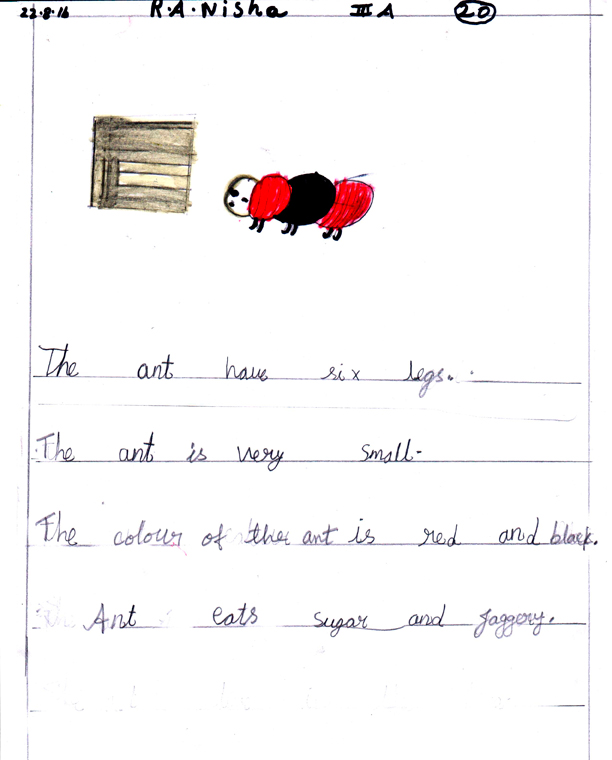 22.8.16 R.A.Nisha III A 20
The ant have six legs.
The ant is very small.
The colour of the ant is red and black.
Ant eats sugar and jaggery.